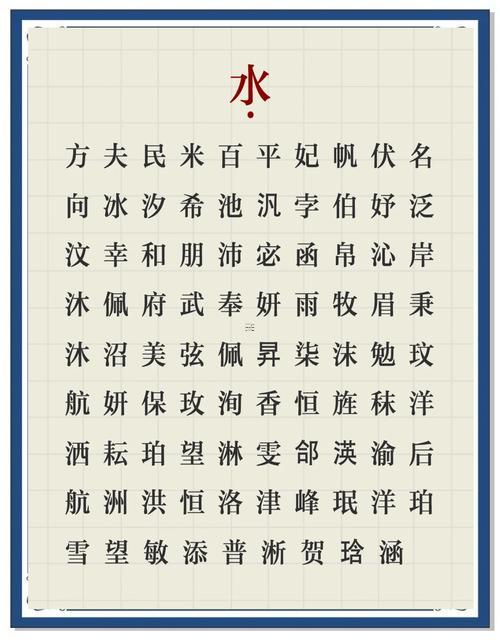 水
方 夫 民 米 百 平 妃 帆 伏 名
向 冰 汐 希 池 汎 孛 伯 妤 泛
汶 幸 和 朋 沛 宓 函 帛 沁 岸
沐 佩 府 武 奉 妍 雨 牧 眉 秉
沐 沼 美 弦 佩 昇 柒 沫 勉 玟
航 妍 保 玫 洵 香 恒 旌 秣 洋
洒 耘 珀 望 淋 雯 郃 渶 渝 后
航 洲 洪 恒 洛 津 峰 珉 洋 珀
雪 望 敏 添 普 淅 贺 琀 涵